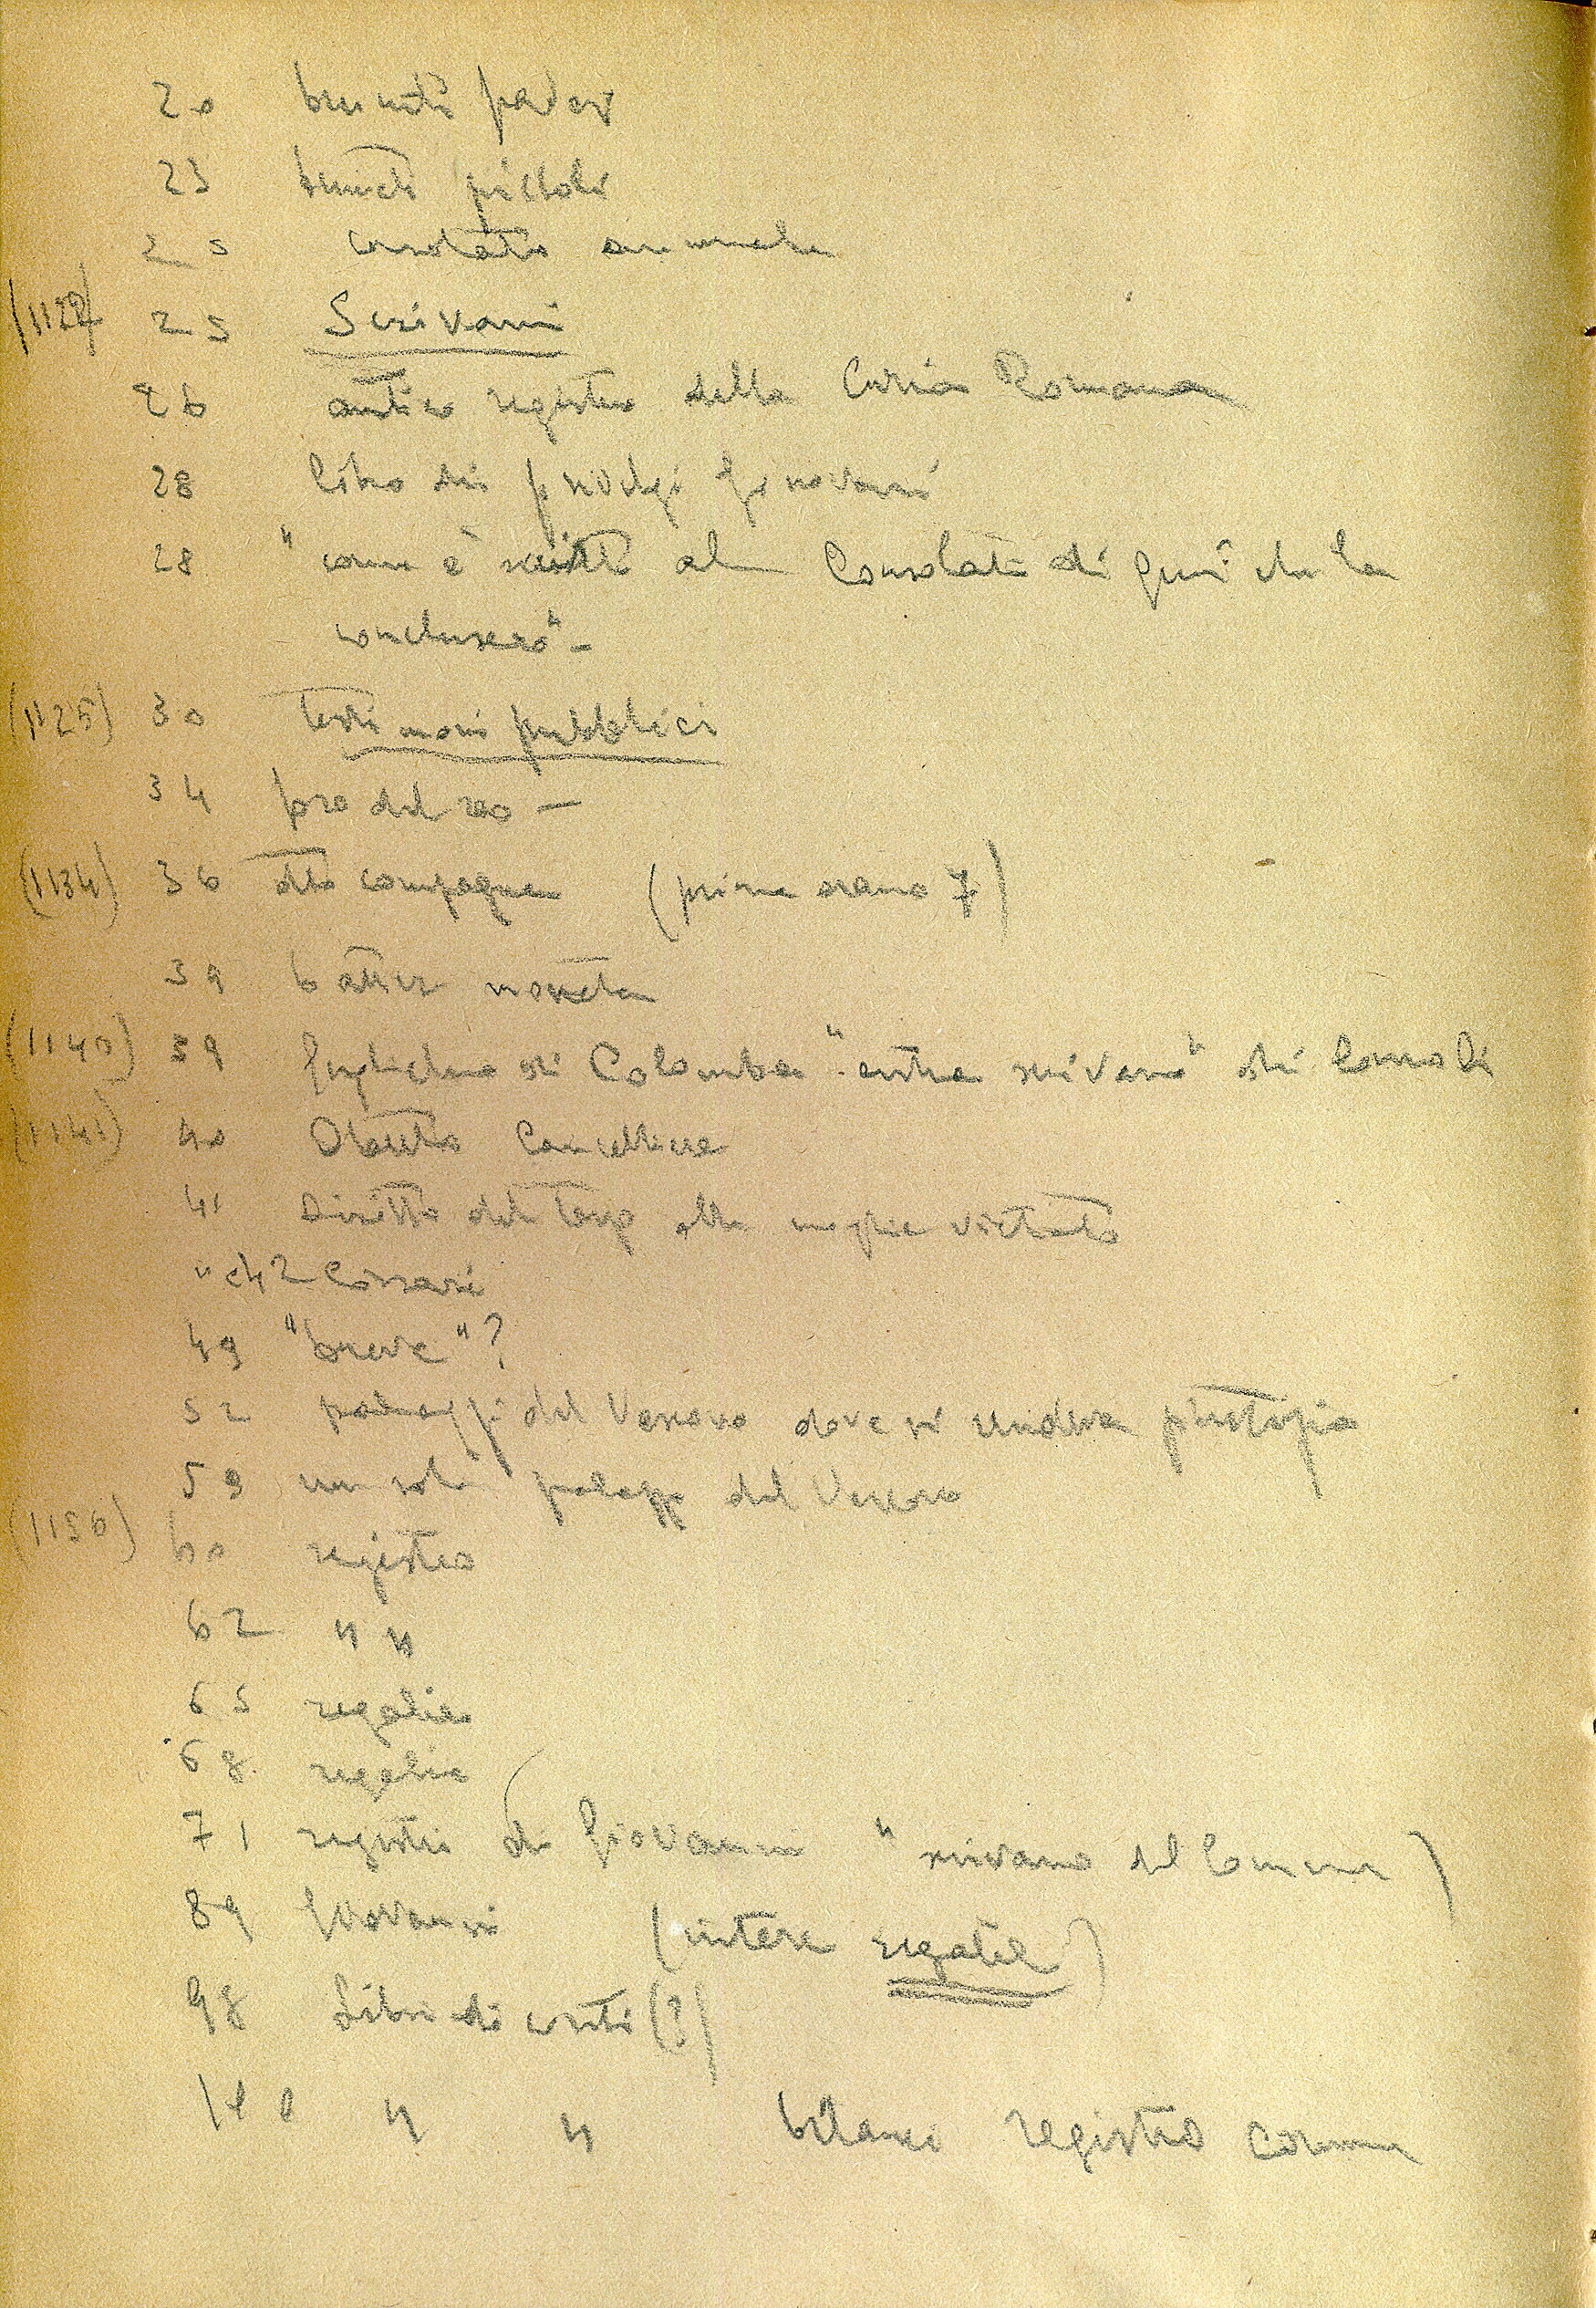 20 bruniti pavesi
23 bruniti piccoli
25 consolato annuale
(1122) 25 Scrivani
26 antico registro della Curia Romana
28 libro dei privilegi genovesi
28 " come è scritto al Consolato di quei che la
conclusero" -
(1125) 30 testimoni pubblici
34 foro del reo -
(1134) 36 otto compagne (prima erano 7)
39 batter moneta
(1140) 39 Guglielmo di Colomba "entra scrivano" dei Consoli
(1141) 40 Oberto Cancelliere
41 Diritto del terzo alla moglie vietato
" e 42 Corsari
49 "breve"?
52 palazzi del Vescovo dove si rendeva giustizia
53 un solo palazzo del Vescovo
(1156) 60 registro
62 " "
65 regalie
68. regalie
71 registri di Giovanni "scrivano del Comune)
89 Giovanni (intera rigata)
98 Libri di conti (?)
" " bilanci registro Comune